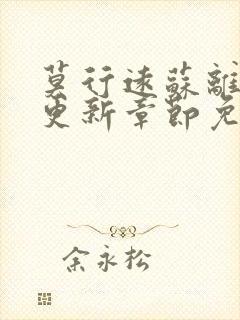 莫行远蘇離
更新章節免
余永松